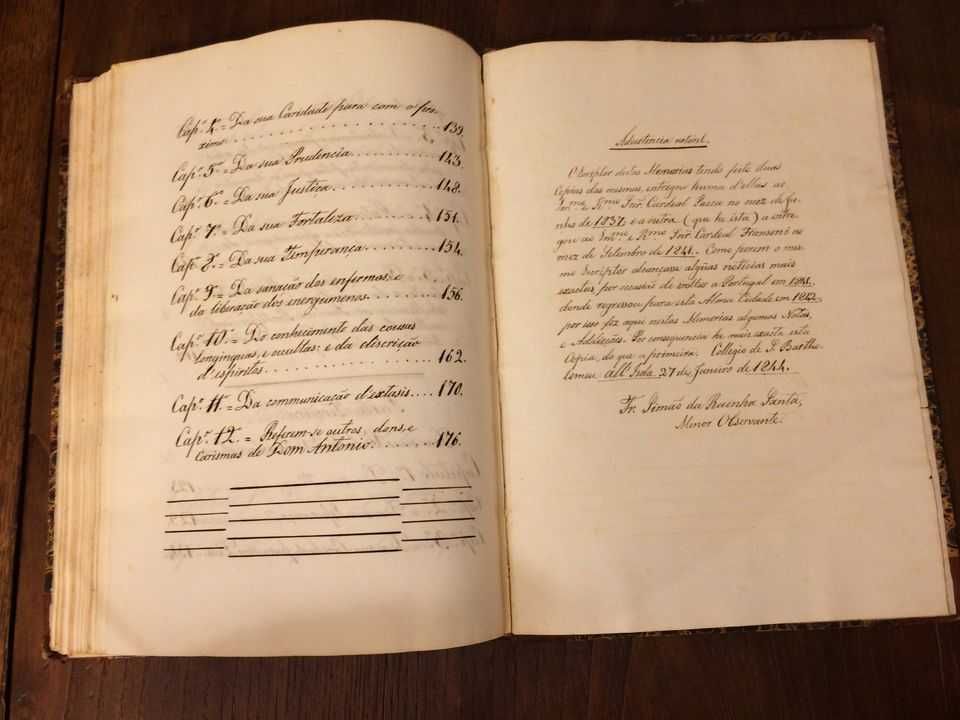 Cap.º 4.º = Da sua Caridade para com o pro-
ximo ........ 139.
Cap.º 5.º = Da sua Prudencia ........ 143.
Cap.º 6.º = Da sua Justiça ........ 148.
Cap.º 7.º = Da sua Fortaleza ........ 151.
Cap.º 8.º = Da sua Temperança ........ 154.
Cap.º 9.º = Da sanação dos enfermos, e
da liberação dos energumenos ........ 156.
Cap.º 10.º = Do conhecimento das cousas
longinquas, e occultas; e da discrição
d'espiritos ........ 162.
Cap.º 11.º = Da communicação d'extasis .... 170.
Cap.º 12.º = Referem-se outros dons, e
carismas de Dom Antonio ........ 176.
Advertencia notavel.
O Escriptor destas Memorias tendo feito duas
Copias das mesmas, entregou huma d'ellas ao
Em.mo e R.mo Snr. Cardeal Pacca no mez de Ju-
nho de 1837, e a outra (que he esta) a entre-
gou ao Em.mo e R.mo Snr. Cardeal Fransoni no
mez de Setembro de 1841. Como porem o mes-
mo Escriptor alcançasse algũas noticias mais
exactas, por occasião de voltar a Portugal em 1841,
donde regressou para esta Alma Cidade em 1842,
por isso fez aqui nestas Memorias algumas Notas,
e Addições. Por consequencia he mais exacta esta
Copia, do que a primeira. Collegio de S. Bartho-
lomeu all'Isola 27 de Janeiro de 1844.
Fr. Simão da Rainha Santa,
Menor Observante.